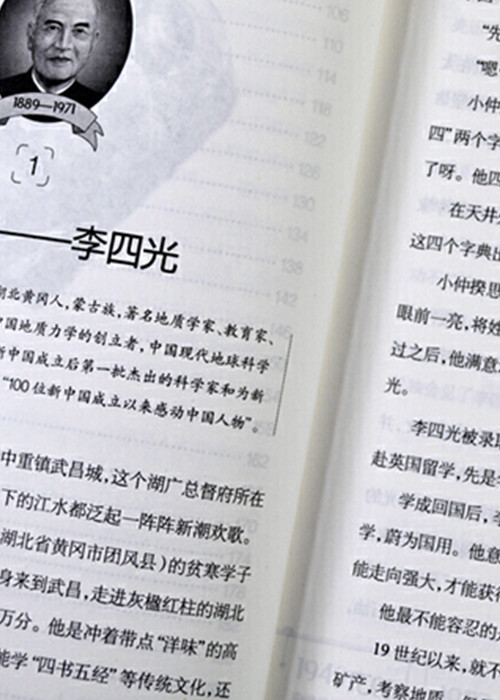 1889—1971
1
——李四光
湖北黄冈人,蒙古族,著名地质学家、教育家、
中国地质力学的创立者,中国现代地球科学
新中国成立后第一批杰出的科学家和为新
“100位新中国成立以来感动中国人物”。
中重镇武昌城,这个湖广总督府所在
下的江水都泛起一阵阵新潮欢歌。
湖北省黄冈市团风县)的贫寒学子
身来到武昌,走进灰楹红柱的湖北
万分。他是冲着带点“洋味”的高
能学“四书五经”等传统文化,还
“先
“嗯
小仲
四”两个字
了呀。他四
在天井
这四个字典出
小仲揆思
眼前一亮,将姓
过之后,他满意
光。
李四光被录取
赴英国留学,先是
学成回国后,
学,蔚为国用。他意
能走向强大,才能获得
他最不能容忍的
19世纪以来,就不
矿产、考察地质
106
110
114
118
122
126
130
134
138
142
146
162